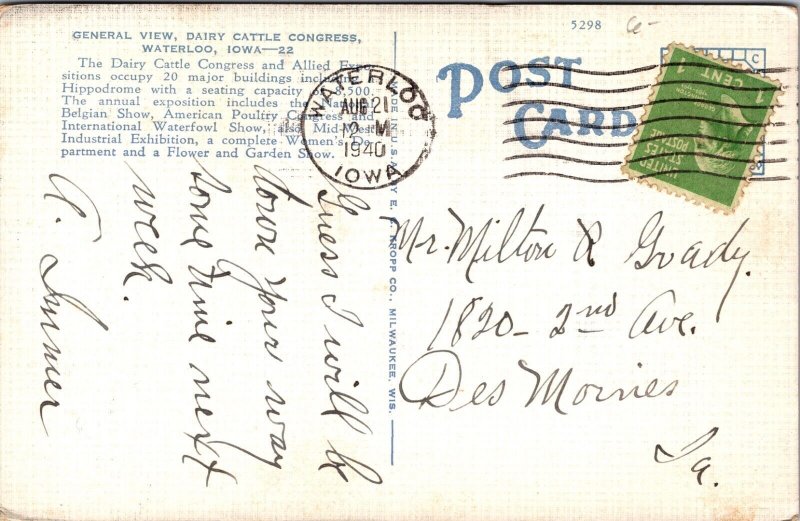 GENERAL VIEW, DAIRY CATTLE CONGRESS,
WATERLOO, IOWA—22
The Dairy Cattle Congress and Allied Expo-
sitions occupy 20 major buildings including
Hippodrome with a seating capacity of 8,500.
The annual exposition includes the National
Belgian Show, American Poultry Congress and
International Waterfowl Show, also Mid-West
Industrial Exhibition, a complete Women's De-
partment and a Flower and Garden Show.
5298
POST
CARD
WATERLOO
AUG 21
12 M
1940
IOWA
1 CENT 1
UNITED
STATES
POSTAGE
C
E. C. KROPP CO., MILWAUKEE, WIS.
Guess I will be
down your way
some time next
week.
Mr. Milton R Grady.
1820- 2nd Ave.
Des Moines
Ia.